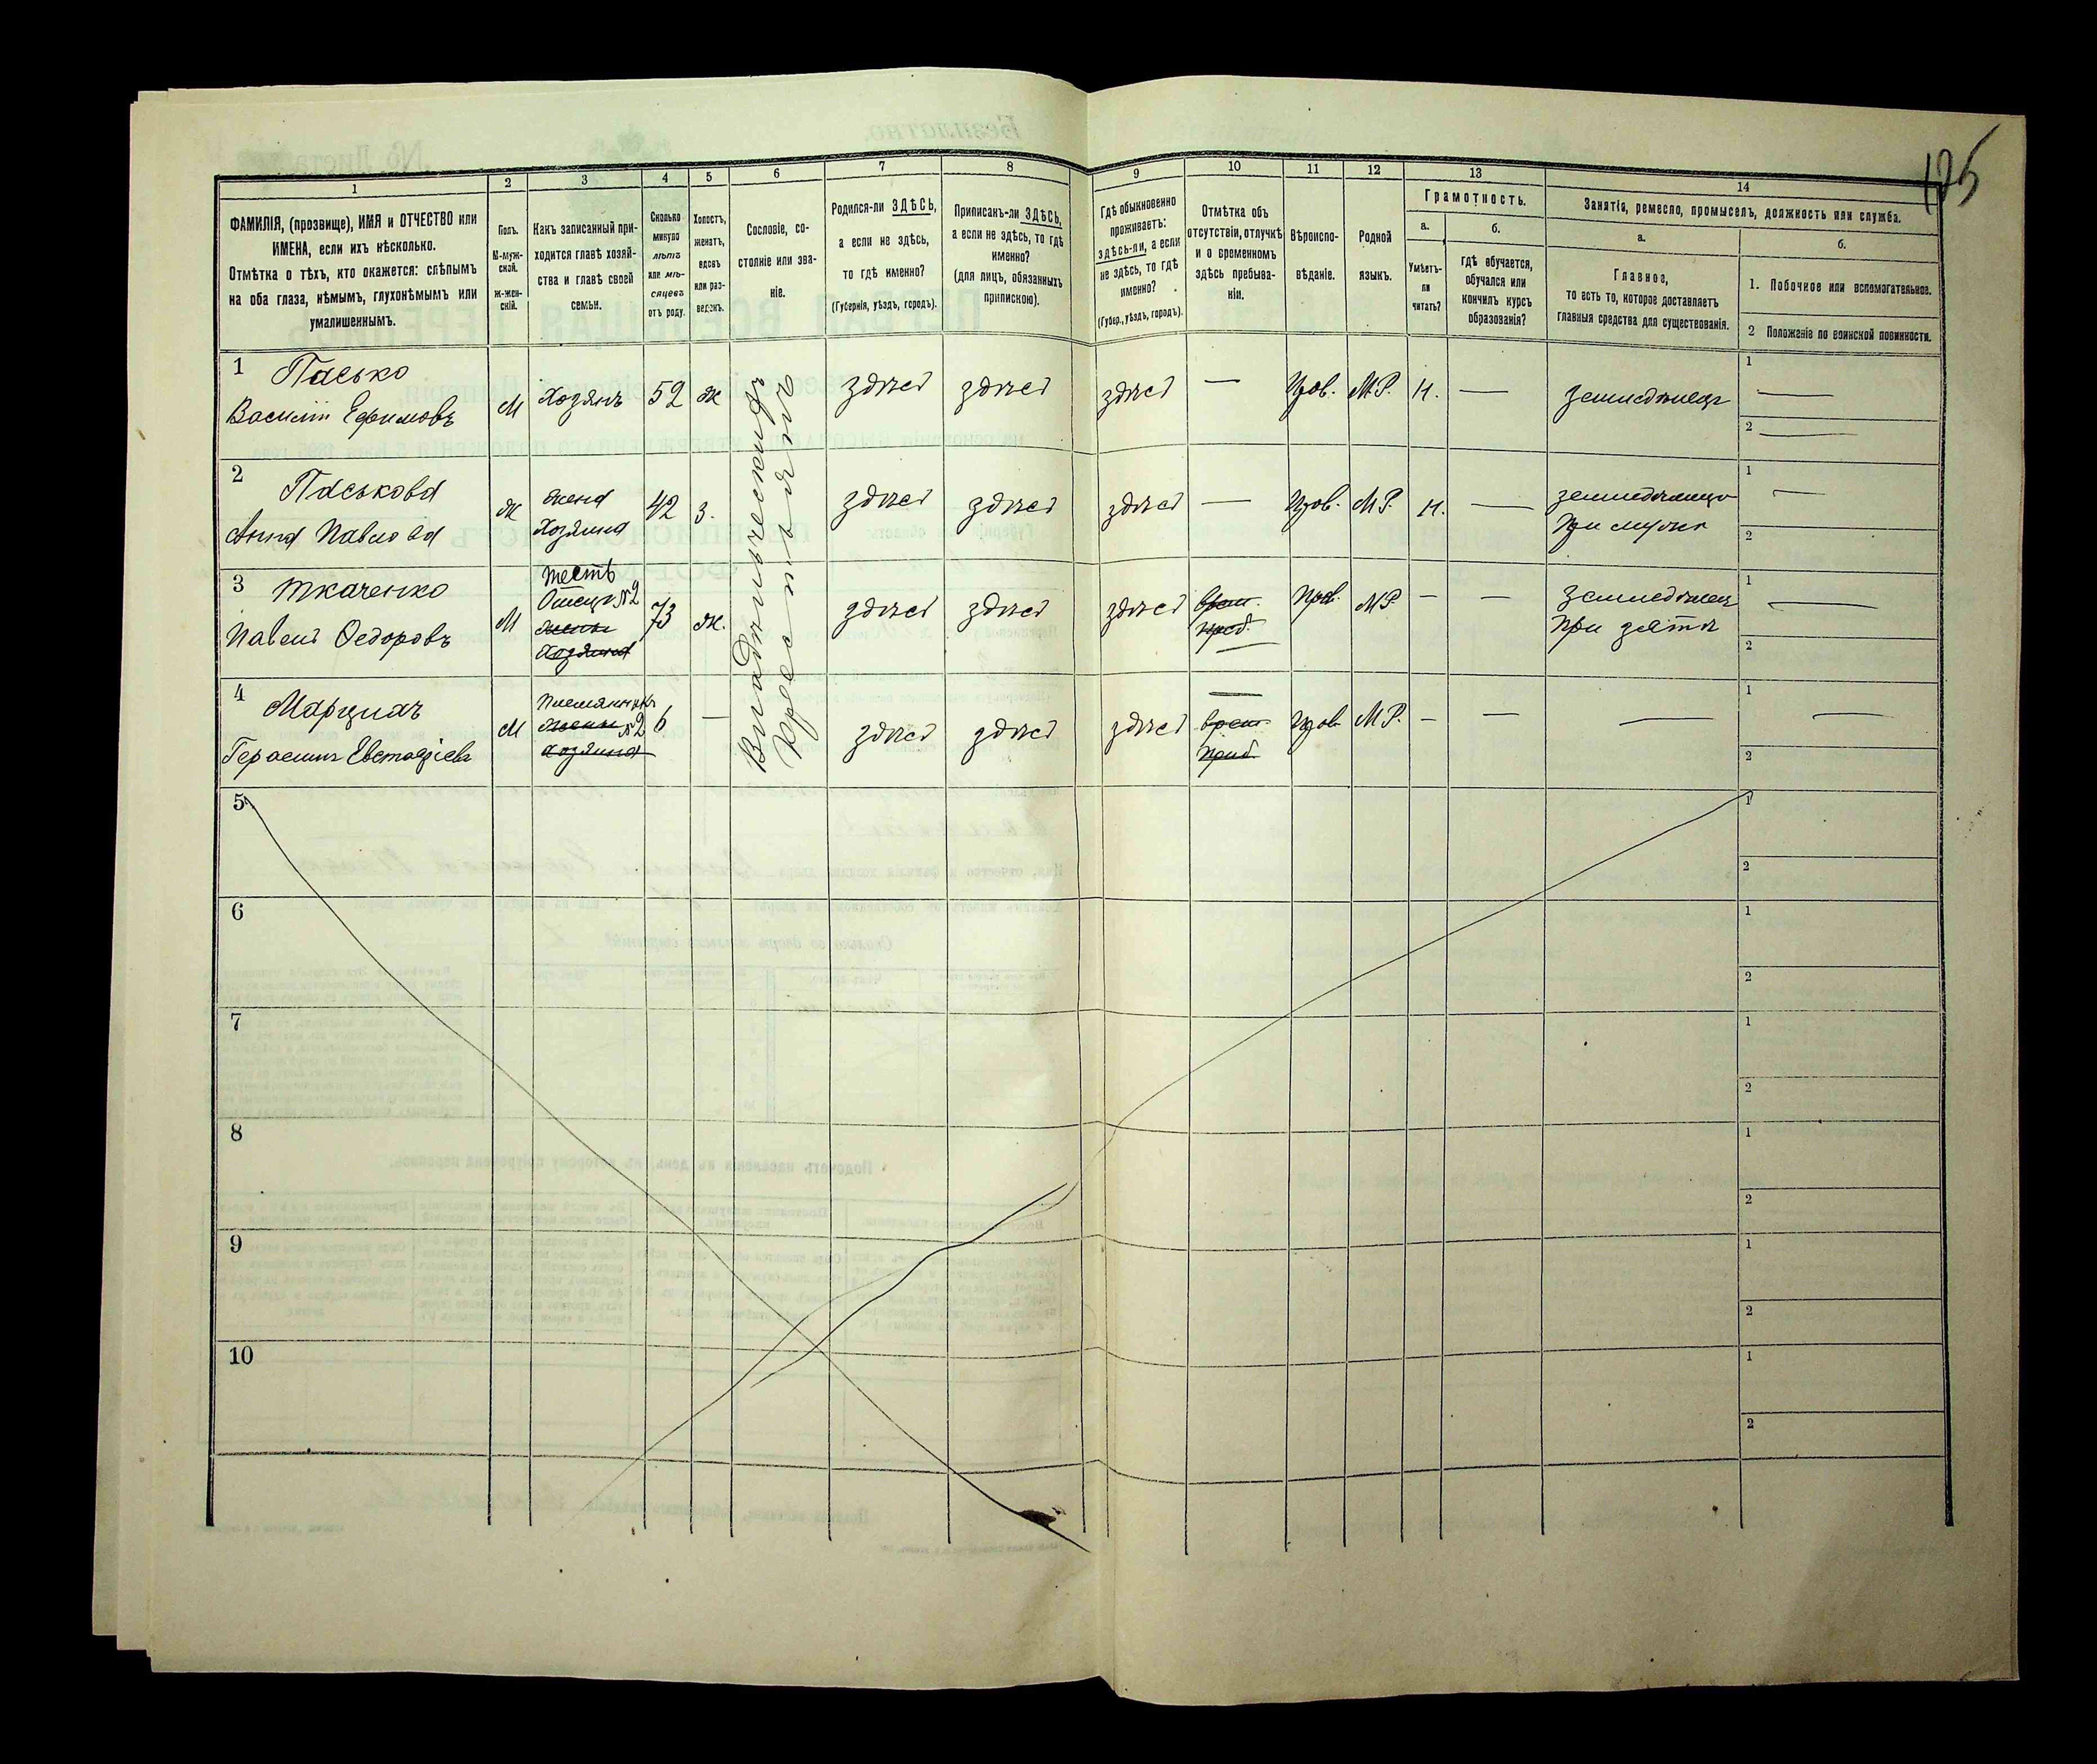 125
1
2
3
4
5
6
7
8
9
10
11
12
13
14
ФАМИЛІЯ, (прозвище), ИМЯ и ОТЧЕСТВО или
ИМЕНА, если ихъ нѣсколько.
Отмѣтка о тѣхъ, кто окажется: слѣпымъ
на оба глаза, нѣмымъ, глухонѣмымъ или
умалишеннымъ.
Полъ.
М-муж-
ской.
Ж-жен-
скій.
Какъ записанный при-
ходится главѣ хозяй-
ства и главѣ своей
семьи.
Сколько
минуло
лѣтъ
или мѣ-
сяцевъ
отъ роду.
Холостъ,
женатъ,
вдовъ
или раз-
веденъ.
Сословіе, со-
стояніе или зва-
ніе.
Родился-ли ЗДѢСЬ,
а если не здѣсь,
то гдѣ именно?
(Губернія, уѣздъ, городъ).
Приписанъ-ли ЗДѢСЬ,
а если не здѣсь, то гдѣ
именно?
(для лицъ, обязанныхъ
припискою).
Гдѣ обыкновенно
проживаетъ:
здѣсь-ли, а если
не здѣсь, то гдѣ
именно?
(Губер., уѣздъ, городъ).
Отмѣтка объ
отсутствіи, отлучкѣ
и о временномъ
здѣсь пребыва-
ніи.
Вѣроиспо-
вѣданіе.
Родной
языкъ.
Грамотность.
а.
Умѣетъ-
ли
читать?
б.
гдѣ обучается,
обучался или
кончилъ курсъ
образованія?
Занятія, ремесло, промыселъ, должность или служба.
а.
Главное,
то есть то, которое доставляетъ
главныя средства для существованія.
б.
1. Побочное или вспомогательное.
2 Положеніе по воинской повинности.
1 Пасько
Василій Ефимовъ
М
Хозяинъ
52
ж
здѣсь
здѣсь
здѣсь
—
Прав.
М.Р.
Н.
—
земледѣлецъ
1
—
2
—
2 Паськова
Анна Павлова
Ж
жена
Хозяина
42
З.
здѣсь
здѣсь
здѣсь
—
Прав.
М.Р.
Н.
—
при мужѣ
1
—
2
3 Ткаченко
Павелъ Ѳедоровъ
М
тесть
Отецъ №2
жены
Хозяина
73
ж.
здѣсь
здѣсь
здѣсь
врем.
преб.
—
Прав.
М.Р.
—
—
земледѣлец
при зятѣ
1
—
2
4
Герасимъ Евстафіевъ
М
Племянникъ
жены №2
хозяина
6
—
здѣсь
здѣсь
здѣсь
—
врем.
преб.
Прав.
М.Р.
—
—
—
1
—
2
Владѣльческихъ
Крестьянъ
5
1
2
6
1
2
7
1
2
8
1
2
9
1
2
10
1
2